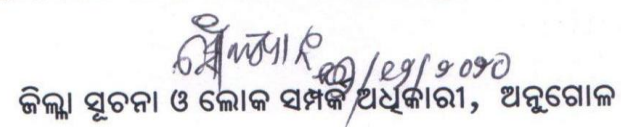 ଜିଲ୍ଲା ସୂଚନା ଓ ଲୋକ ସମ୍ପର୍କ ଅଧିକାରୀ, ଅନୁଗୋଳ